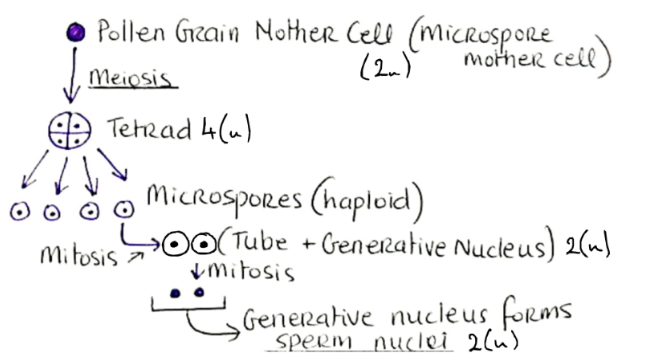 Pollen Grain Mother Cell (Microspore
(2n) mother cell)
Meiosis
Tetrad 4(n)
Microspores (haploid)
Mitosis (Tube + Generative Nucleus) 2(n)
mitosis
Generative nucleus forms
sperm nuclei 2(n)